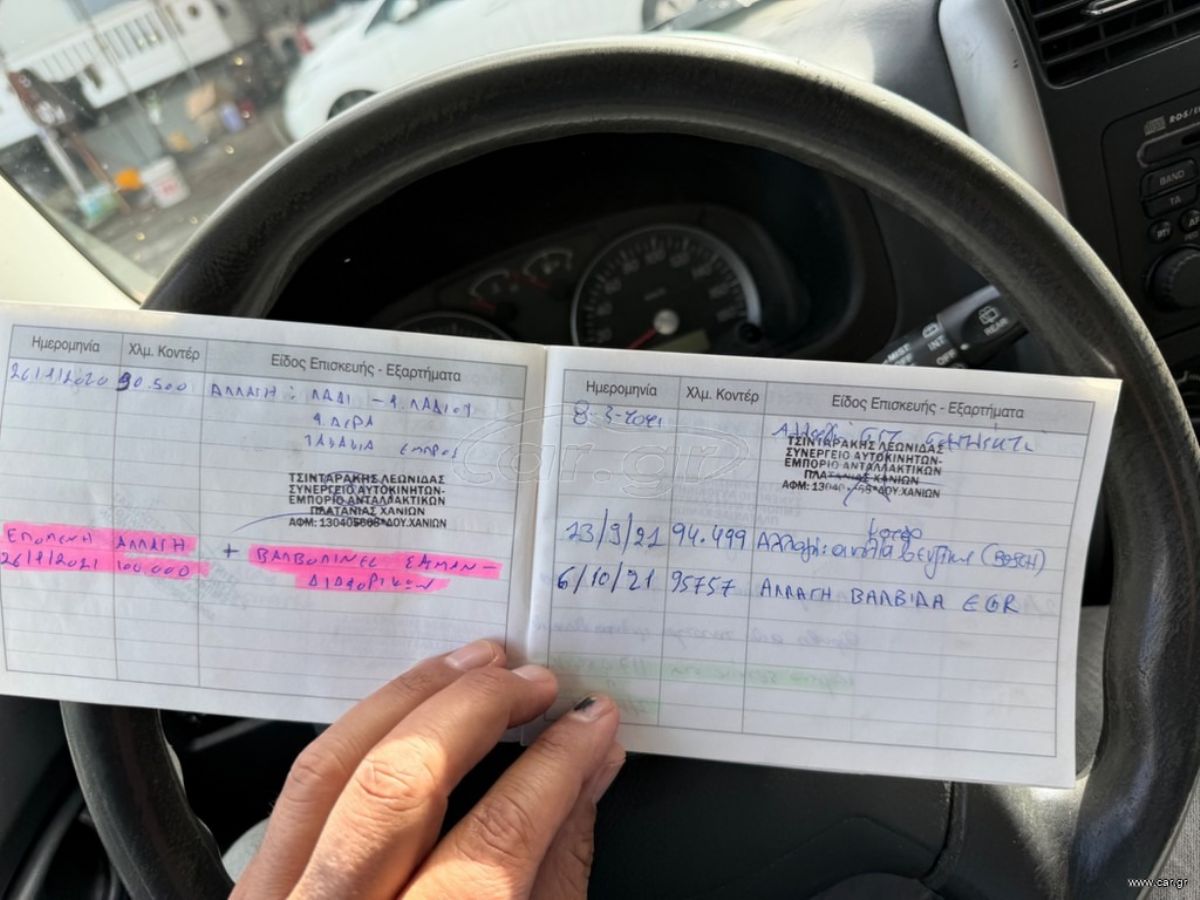 Ημερομηνία Χλμ. Κοντέρ Είδος Επισκευής - Εξαρτήματα
26/1/2020 90.500 ΑΛΛΑΓΗ: ΛΑΔΙ - Φ. ΛΑΔΙΟΥ
Φ. ΑΕΡΑ
ΤΑΚΑΚΙΑ ΕΜΠΡΟΣ
ΤΣΙΝΤΑΡΑΚΗΣ ΛΕΩΝΙΔΑΣ
ΣΥΝΕΡΓΕΙΟ ΑΥΤΟΚΙΝΗΤΩΝ-
ΕΜΠΟΡΙΟ ΑΝΤΑΛΛΑΚΤΙΚΩΝ
ΠΛΑΤΑΝΙΑΣ ΧΑΝΙΩΝ
ΔΟΥ:ΧΑΝΙΩΝ
ΕΠΟΜΕΝΗ ΑΛΛΑΓΗ
26/1/2021 100.000 + ΒΑΛΒΟΛΙΝΕΣ ΣΑΣΜΑΝ -
ΔΙΑΦΟΡΙΚΩΝ
Ημερομηνία Χλμ. Κοντέρ Είδος Επισκευής - Εξαρτήματα
8-3-2021
ΤΣΙΝΤΑΡΑΚΗΣ ΛΕΩΝΙΔΑΣ
ΣΥΝΕΡΓΕΙΟ ΑΥΤΟΚΙΝΗΤΩΝ-
ΕΜΠΟΡΙΟ ΑΝΤΑΛΛΑΚΤΙΚΩΝ
ΠΛΑΤΑΝΙΑΣ ΧΑΝΙΩΝ
ΔΟΥ:ΧΑΝΙΩΝ
23/9/21 94.499 Αλλαγή: αντλία (BOSCH)
6/10/21 95757 ΑΛΛΑΓΗ ΒΑΛΒΙΔΑ EGR
car.gr
RDS
BAND
TA
MIST
INT
OFF
REAR
www.car.gr